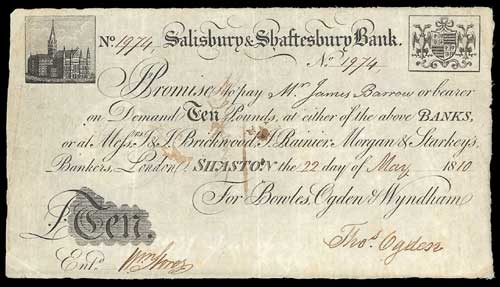 No. 1974. Salisbury & Shaftesbury Bank.
No. 1974
I Promise to pay Mr. James Barrow or bearer
on Demand Ten Pounds, at either of the above BANKS,
or at Messrs. J & J. Brickwood, J. Rainier, Morgan & Starkeys
Bankers, London. SHASTON the 22 day of May 1810
For Bowles, Ogden & Wyndham
£Ten.
Thos. Ogden
Entd.